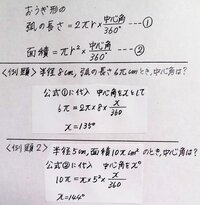 おうぎ形の
弧の長さ = 2πr × 中心角/360° ---①
面積 = πr² × 中心角/360° ---②
<例題1> 半径8cm, 弧の長さ6πcmのとき, 中心角は?
公式①に代入 中心角をxとして
6π = 2π×8×x/360
x = 135°
<例題2> 半径5cm, 面積10πcm²のとき, 中心角は?
公式②に代入 中心角をx°
10π = π×5²×x/360
x = 144°